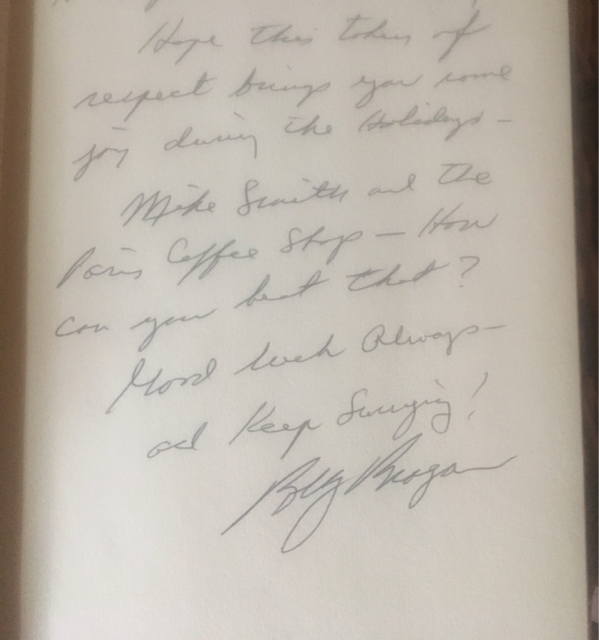 Hope this token of
respect brings you some
joy during the Holidays -
Mike Smith and the
Paris Coffee Shop - How
can you beat that?
Good luck Always -
and Keep Swinging!
Billy Brogan